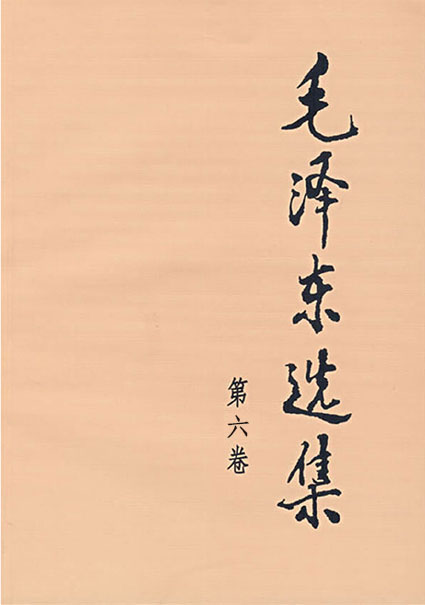 毛泽东选集
第六卷